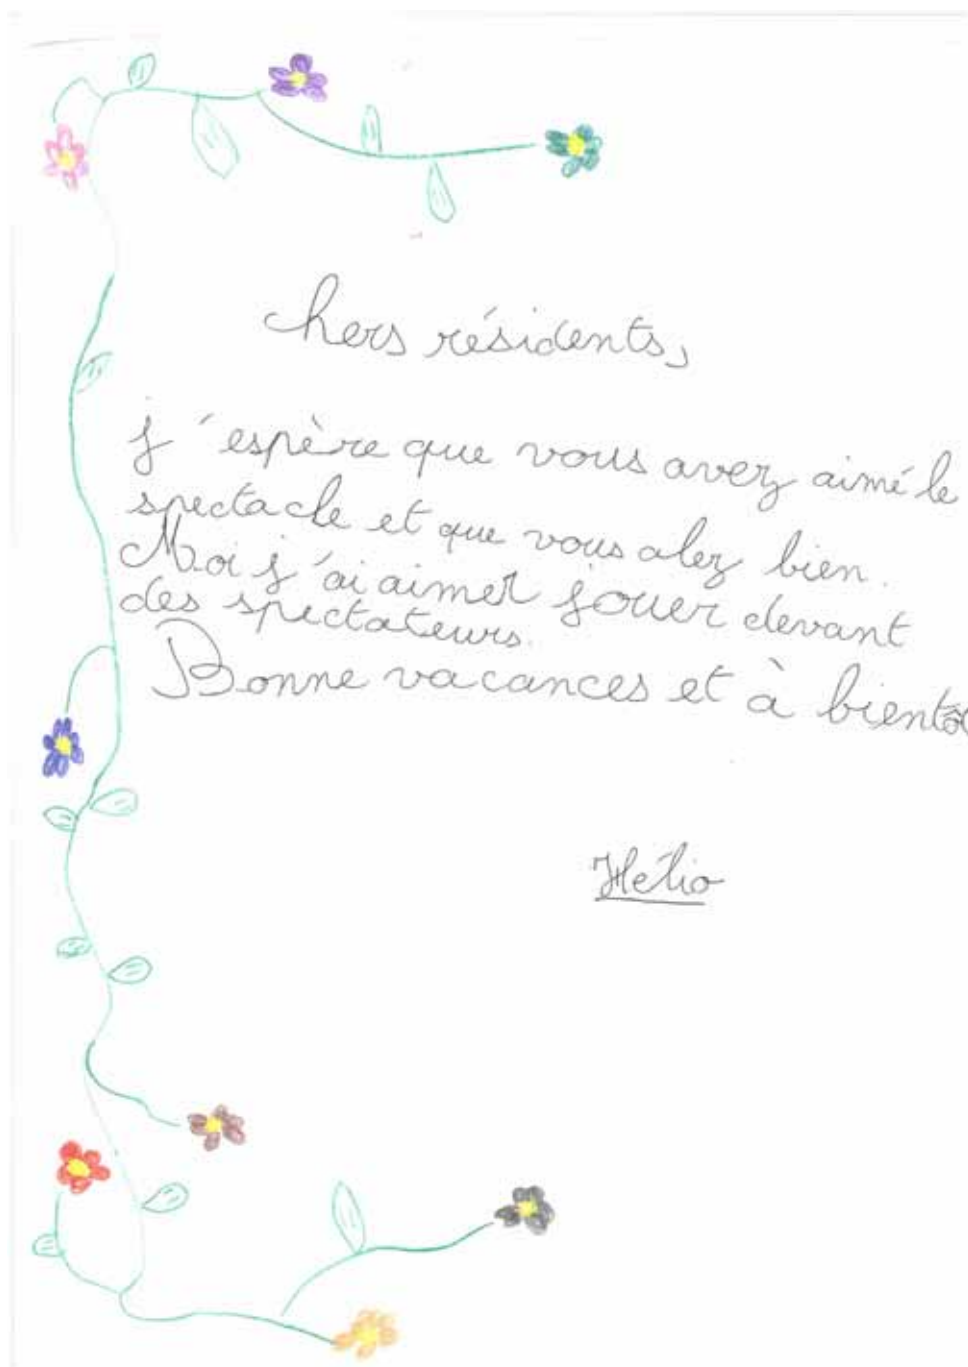 chers résidents,
j'espère que vous avez aimé le
spectacle et que vous alez bien.
Moi j'ai aimer jouer devant
des spectateurs.
Bonne vacances et à bientôt
Hélio